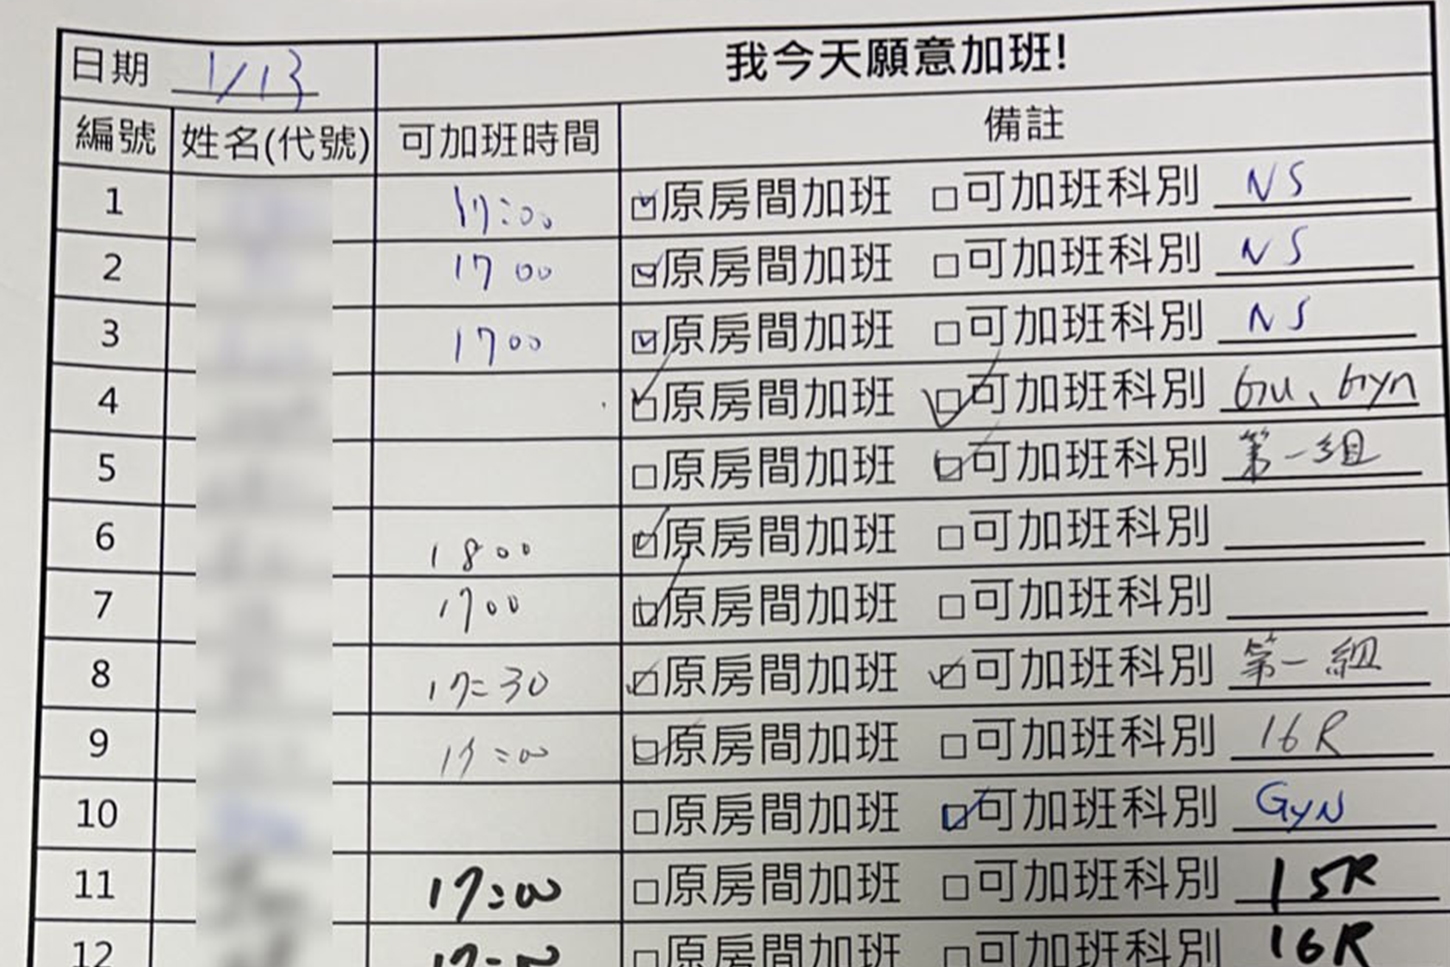 日期 1/13 我今天願意加班!
編號 姓名(代號) 可加班時間 備註
1 17:00 ☑原房間加班 □可加班科別 NS
2 17 00 ☑原房間加班 □可加班科別 NS
3 1700 ☑原房間加班 □可加班科別 NS
4 ☑原房間加班 ☑可加班科別 GU、Gyn
5 □原房間加班 ☑可加班科別 第一組
6 1800 ☑原房間加班 □可加班科別
7 1700 ☑原房間加班 □可加班科別
8 17:30 ☑原房間加班 ☑可加班科別 第一組
9 17:00 ☑原房間加班 □可加班科別 16R
10 □原房間加班 ☑可加班科別 GyN
11 17:00 □原房間加班 □可加班科別 15R
12 □原房間加班 □可加班科別 16R